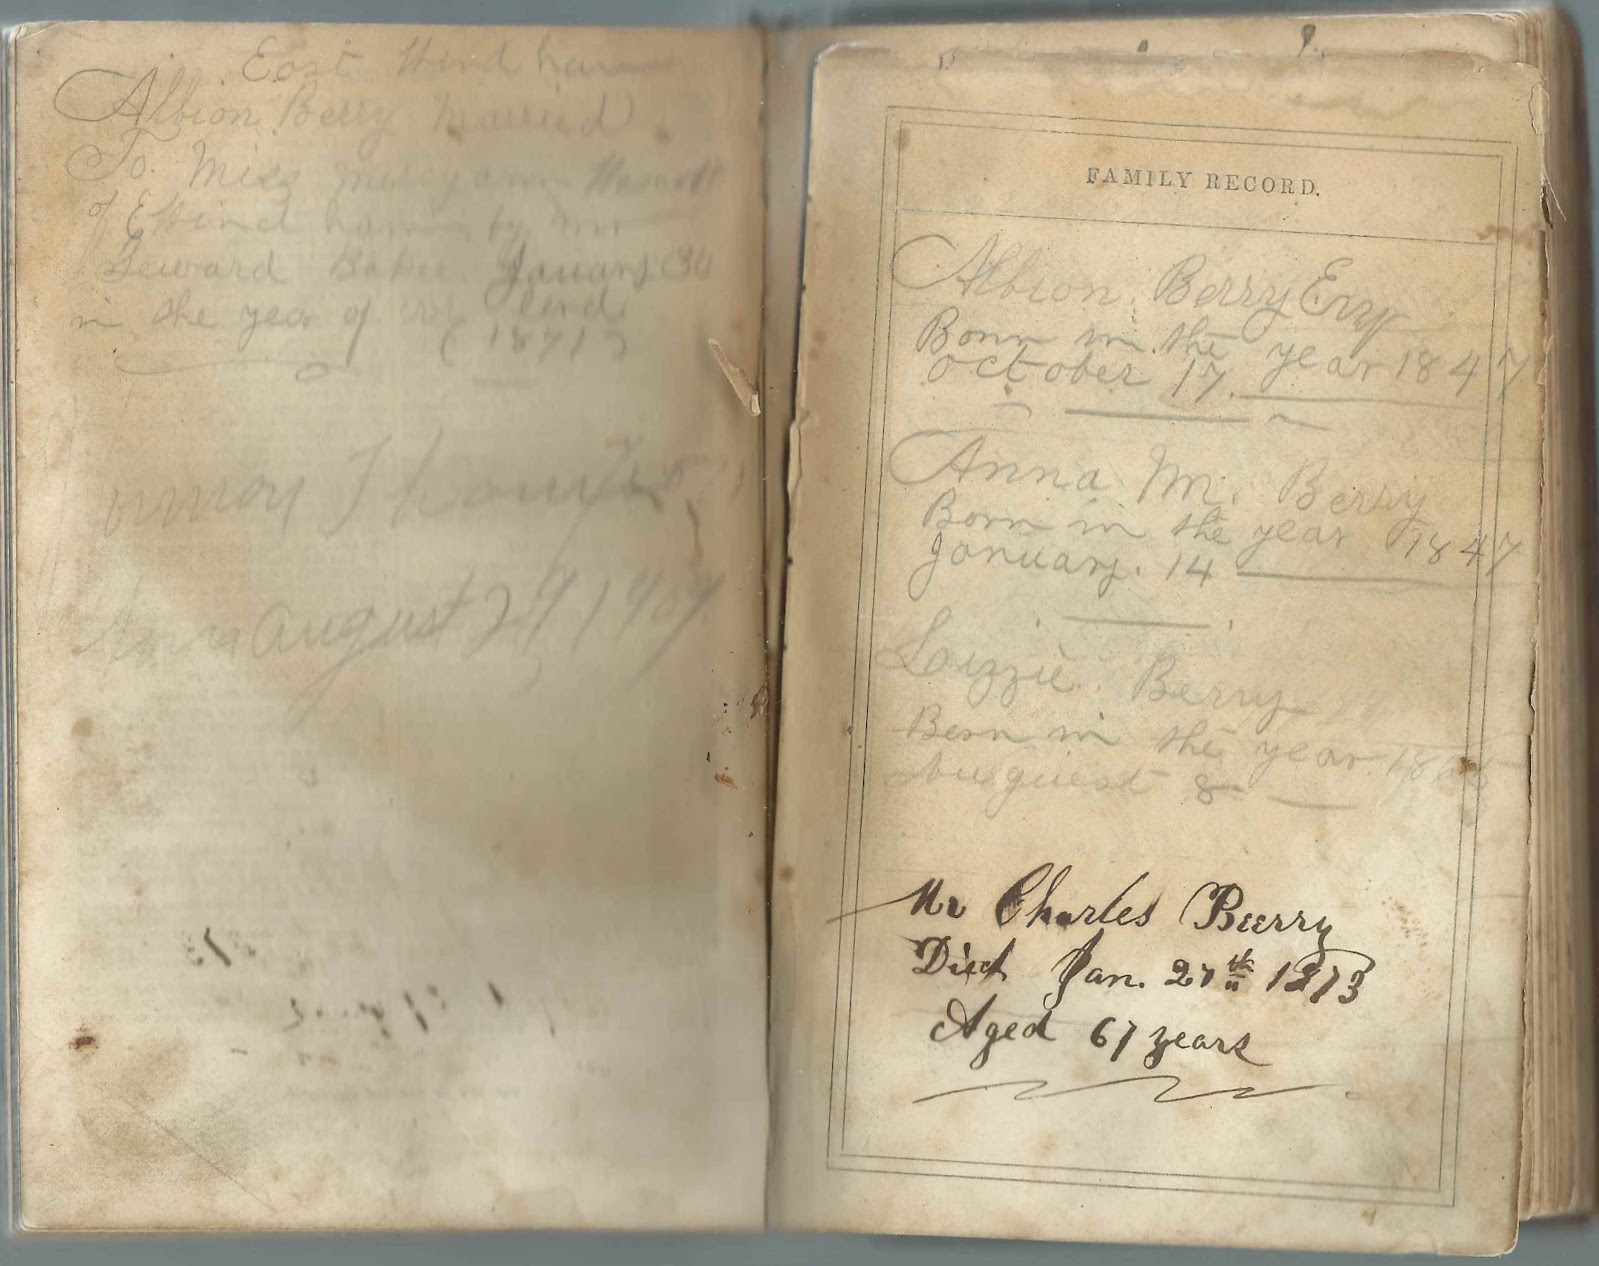 East Windham
Albion Berry Married
To Miss
of E Windham by Mr
Seward Baker January 30
in the year of our Lord
(1871)
August 29 1909
FAMILY RECORD.
Albion. Berry Esqr
Born in the year 1847
October 17
Anna M. Berry
Born in the year 1847
January. 14
Lizzie. Berry
Born in the year
8
Mr Charles Berry
Died Jan. 27th 1873
Aged 67 years